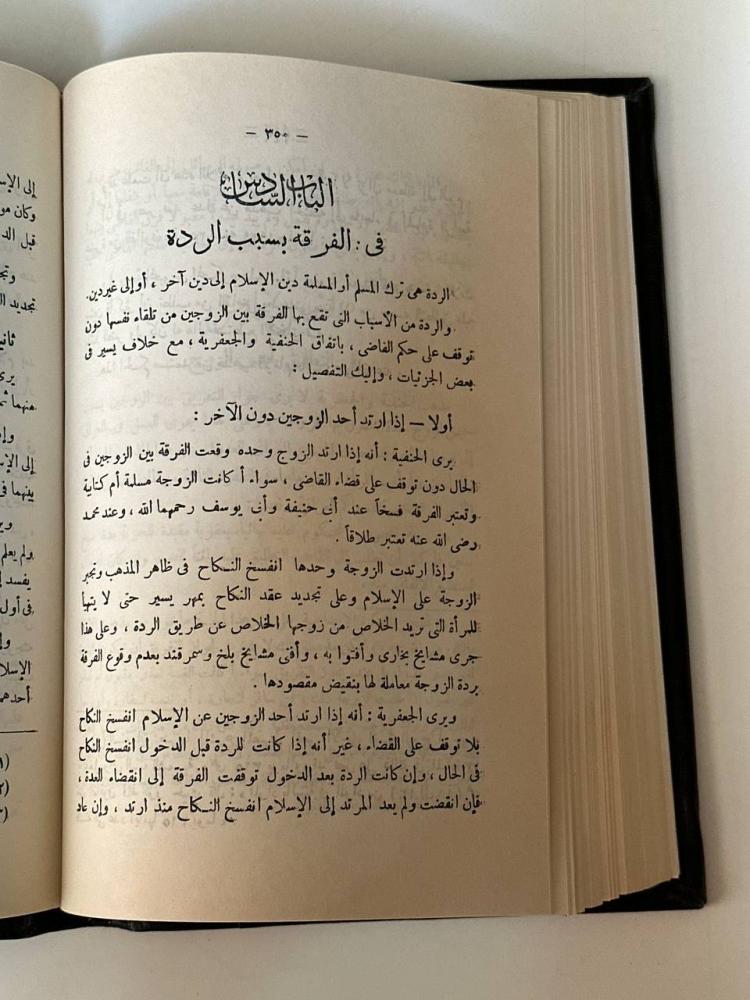 — ٣٥٠ —
الباب السادس
فى : الفرقة بسبب الردة
الردة هى ترك المسلم أو المسلمة دين الإسلام إلى دين آخر ، أو إلى غير دين.
والردة من الأسباب التى تقع بها الفرقة بين الزوجين من تلقاء نفسها دون
توقف على حكم القاضى ، باتفاق الحنفية والجعفرية ، مع خلاف يسير فى
بعض الجزئيات ، وإليك التفصيل :
أولا — إذا ارتد أحد الزوجين دون الآخر :
يرى الحنفية : أنه إذا ارتد الزوج وحده وقعت الفرقة بين الزوجين فى
الحال دون توقف على قضاء القاضى ، سواء أكانت الزوجة مسلمة أم كتابية
وتعتبر الفرقة فسخاً عند أبي حنيفة وأبي يوسف رحمهما الله ، وعند محمد
رضى الله عنه تعتبر طلاقاً .
وإذا ارتدت الزوجة وحدها انفسخ النكاح فى ظاهر المذهب وتجبر
الزوجة على الإسلام وعلى تجديد عقد النكاح بمهر يسير حتى لا يتهيأ
للمرأة التى تريد الخلاص من زوجها الخلاص عن طريق الردة ، وعلى هذا
جرى مشايخ بخارى وأفتوا به ، وأفتى مشايخ بلخ وسمرقند بعدم وقوع الفرقة
بردة الزوجة معاملة لها بنقيض مقصودها .
ويرى الجعفرية : أنه إذا ارتد أحد الزوجين عن الإسلام انفسخ النكاح
بلا توقف على القضاء ، غير أنه إذا كانت للردة قبل الدخول انفسخ النكاح
فى الحال ، وإن كانت الردة بعد الدخول توقفت الفرقة إلى انقضاء العدة ،
فإن انقضت ولم يعد المرتد إلى الإسلام انفسخ النكاح منذ ارتد ، وإن عاد